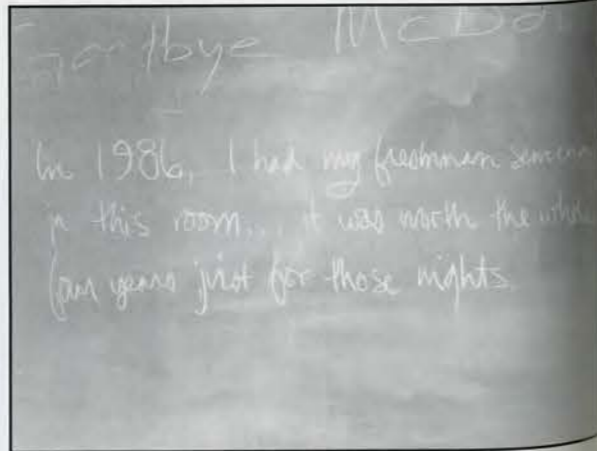 Goodbye McDo
In 1986, I had my freshman semina
in this room... it was worth the whole
four years just for those nights.